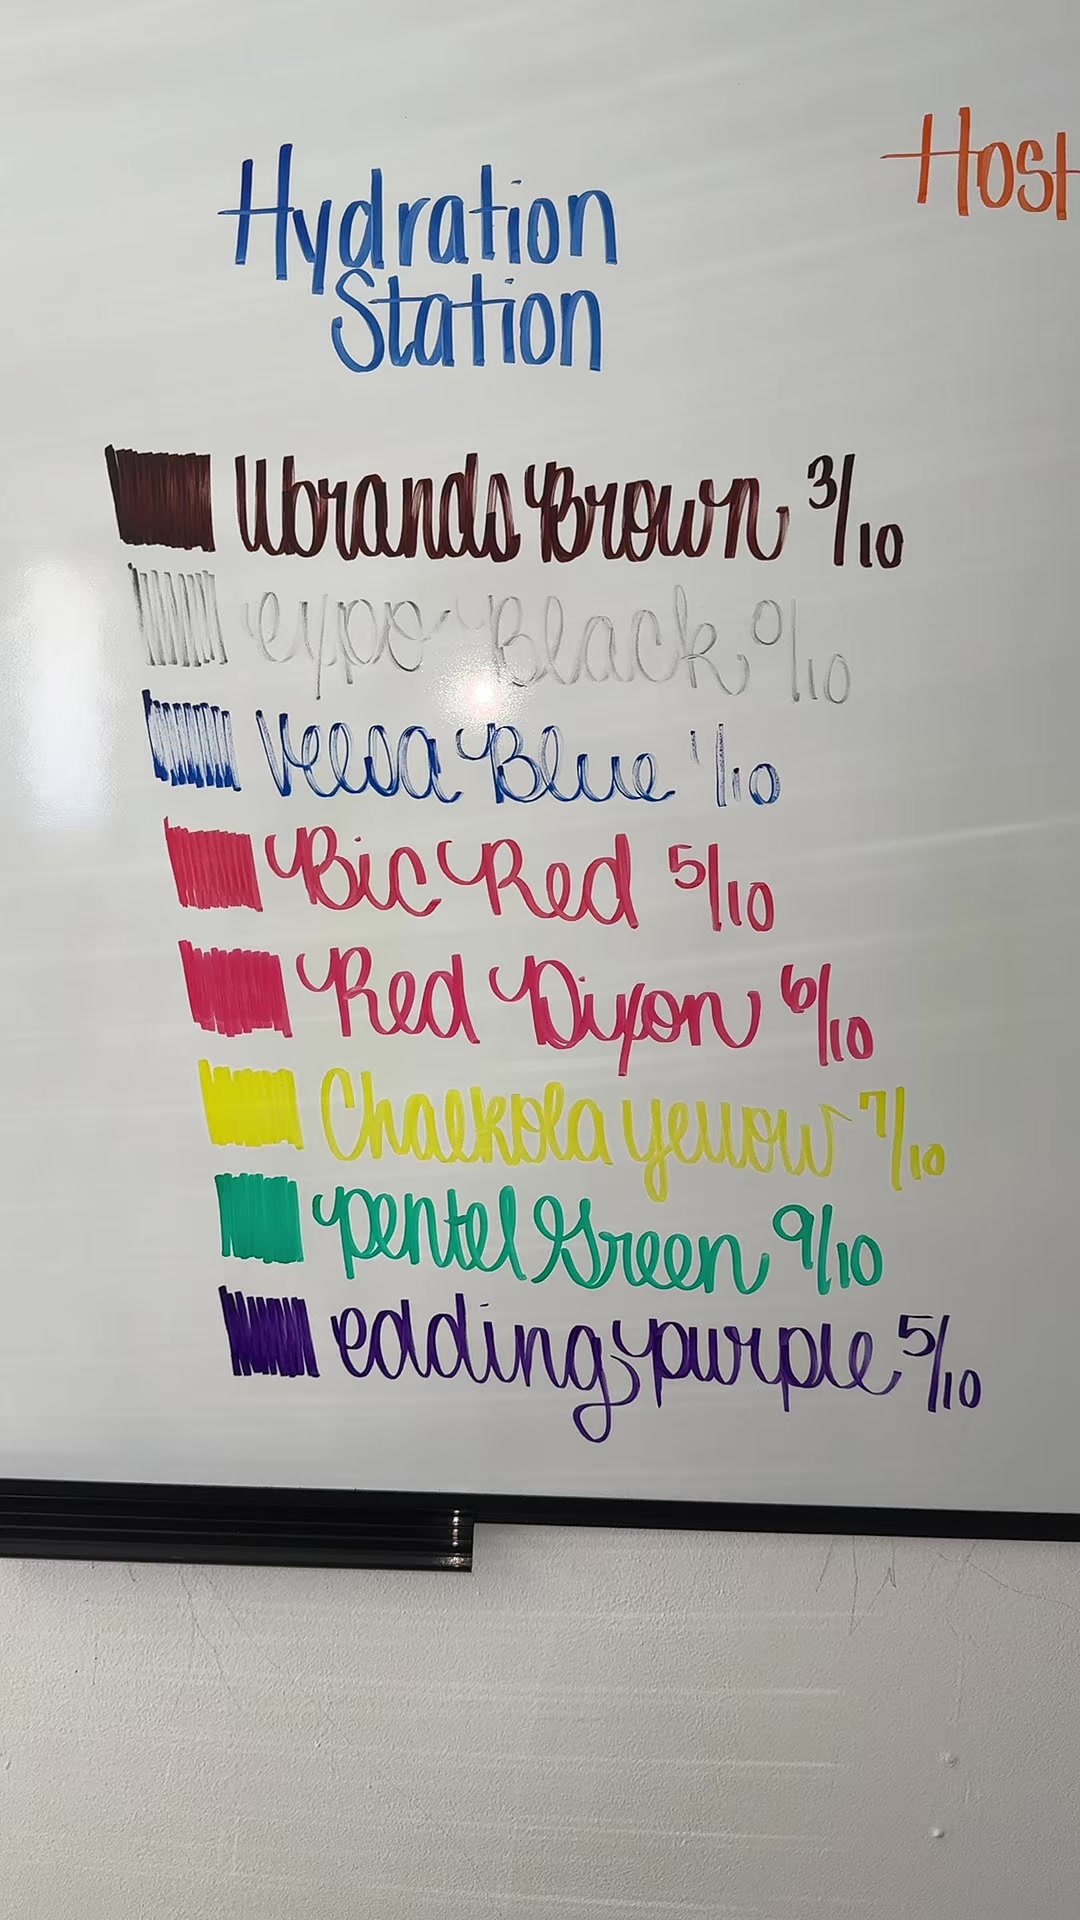 Hydration
Station
Host
Ubrands Brown 3/10
expo Black 0/10
Veesa Blue 1/10
Bic Red 5/10
Red Dixon 6/10
Chalkola yellow 7/10
pentel Green 9/10
edding purple 5/10